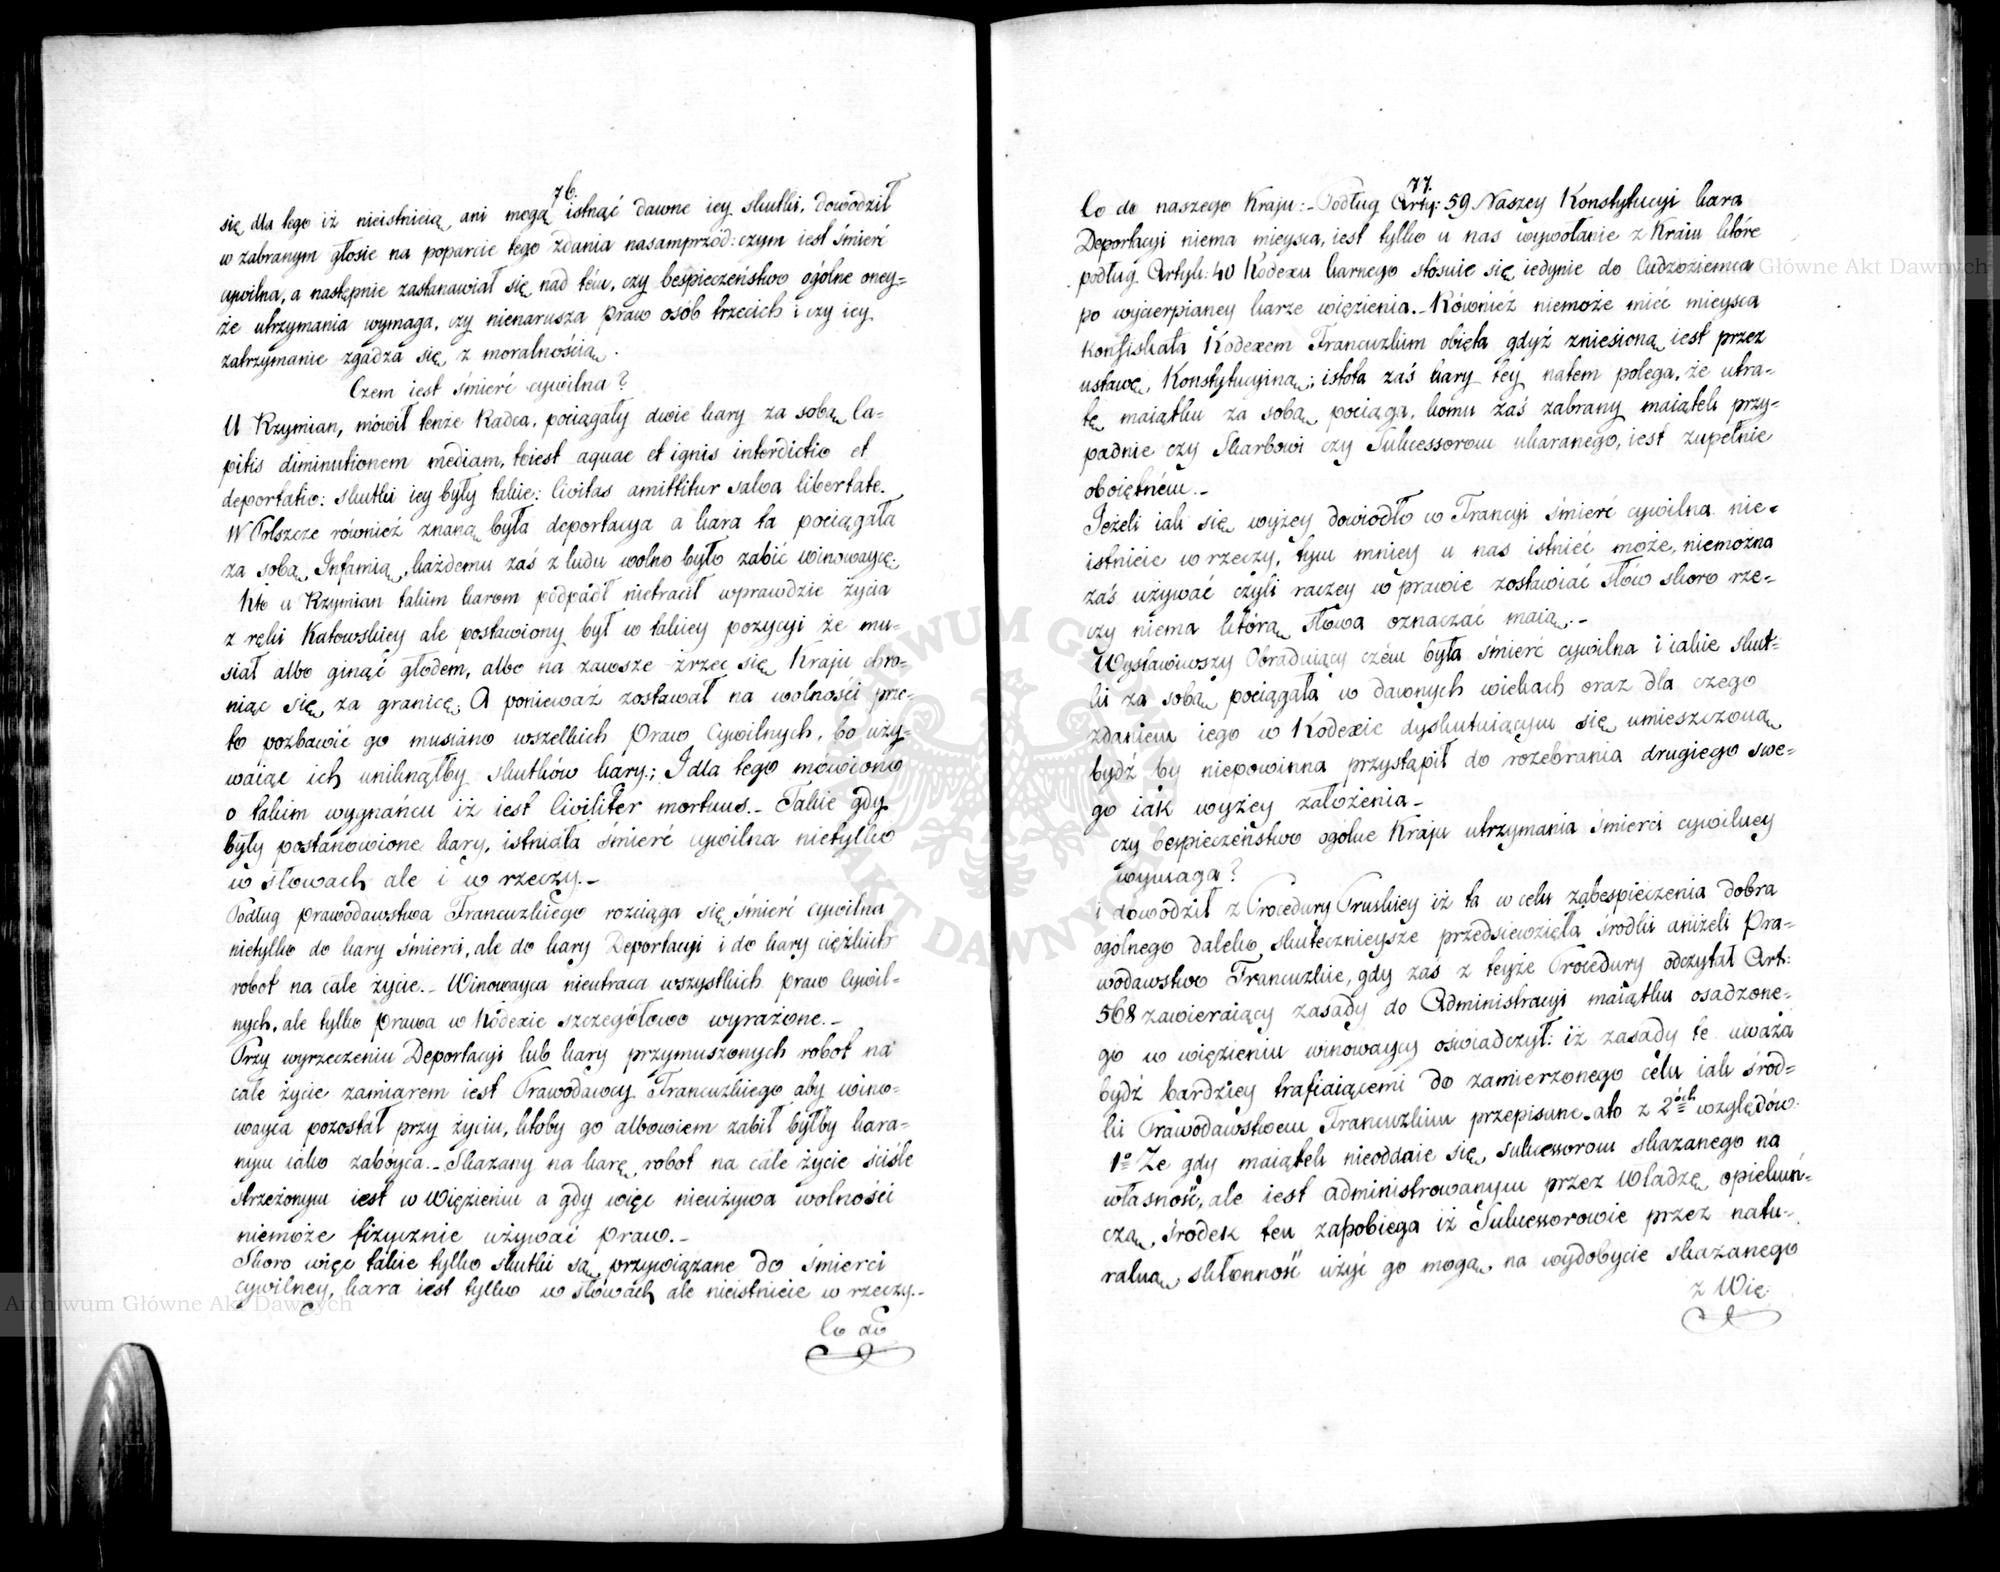 76.
się dla tego iż nieistnieią ani mogą istnąć dawne iey skutki, dowodził
w zabranym głosie na poparcie tego zdania nasamprzód: czym iest śmierć
cywilna, a następnie zastanawiał się nad tém, czy bespieczeństwo ogólne oney-
że utrzymania wymaga, czy nienarusza praw osób trzecich i czy iey
zatrzymanie zgadza się z moralnością.
Czem iest śmierć cywilna?
U Rzymian, mówił tenże Radca, pociągały dwie kary za sobą Ca-
pitis diminutionem mediam, toiest aquae et ignis interdictio et
deportatio: skutki iey były takie: Civitas amittitur salva libertate.
W Polszcze również znaną była deportacya a kara ta pociągała
za sobą Infamią, każdemu zaś z ludu wolno było zabić winowaycę;
Kto u Rzymian takim karom podpadł nietracił wprawdzie życia
z ręki Katowskiey ale postawiony był w takiey pozycyi że mu-
siał albo ginąć głodem, albo na zawsze zrzec się Kraju chro-
niąc się za granicę; A ponieważ zostawał na wolności prze-
to pozbawić go musiano wszelkich Praw Cywilnych, bo uży-
waiąc ich uniknąłby skutków kary; I dla tego mówiono
o takim wygnańcu iż iest Civiliter mortuus._ Takie gdy
były postanowione kary, istniała śmierć cywilna nietylko
w słowach ale i w rzeczy._
Podług prawodawstwa Francuzkiego rozciąga się śmierć cywilna
nietylko do kary śmierci, ale do kary Deportacyi i do kary ciężkich
robot na całe życie._ Winowayca nieutraca wszystkich praw Cywil-
nych, ale tylko prawa w Kodexie szczegółowo wyrażone._
Przy wyrzeczeniu Deportacyi lub kary przymuszonych robot na
całe życie zamiarem iest Prawodawcy Francuzkiego aby wino-
wayca pozostał przy życiu, ktoby go albowiem zabił byłby kara-
nym iako zabóyca._ Skazany na karę robot na całe życie ściśle
strzeżonym iest w Więzieniu a gdy więc nieużywa wolności
niemoże fizycznie używać praw._
Skoro więc takie tylko skutki są przywiązane do śmierci
cywilney, kara iest tylko w słowach ale nieistnieie w rzeczy._
Co do
77.
Co do naszego Kraju:_ Podług Arty: 59 Naszey Konstytucyi kara
Deportacyi niema mieysca, iest tylko u nas wywołanie z Kraiu które
podług Artyk: 40 Kodexu karnego stósuie się iedynie do Cudzoziemca
po wycierpianey karze więzienia._ Również niemoże mieć mieysca
konfiskata Kodexem Francuzkim obięta gdyż zniesioną iest przez
ustawę Konstytucyiną; istota zaś kary tey natem polega, że utra-
tę maiątku za sobą pociąga, komu zaś zabrany maiątek przy-
padnie czy Skarbowi czy Sukcessorom ukaranego, iest zupełnie
oboiętném._
Jeżeli iak się wyżey dowiodło w Francyi śmierć cywilna nie-
istnieie w rzeczy, tym mniey u nas istnieć może, niemożna
zaś używać czyli raczey w prawie zostawiać słów skoro rze-
czy niema którą słowa oznaczać maią._
Wysławiwszy Obraduiący czém była śmierć cywilna i iakie skut-
ki za sobą pociągała w dawnych wiekach oraz dla czego
zdaniem iego w Kodexie dyskutuiącym się umieszczoną
bydź by niepowinna przystąpił do rozebrania drugiego swe-
go iak wyżey założenia_
czy bespieczeństwo ogólne Kraju utrzymania śmierci cywilney
wymaga?
i dowodził z Procedury Pruskiey iż ta w celu zabespieczenia dobra
ogólnego daleko skutecznieysze przedsiewzięła środki aniżeli Pra-
wodawstwo Francuzkie, gdy zaś z teyże Procedury odczytał Art:
568 zawieraiący zasady do Administracyi maiątku osadzone-
go w więzieniu winowaycy oświadczył: iż zasady te uważa
bydź bardziey trafiaiącemi do zamierzonego celu iak środ-
ki Prawodawstwem Francuzkim przepisane, ato z 2óch względów:
1o Ze gdy maiątek nieoddaie się sukcessorom skazanego na
własność, ale iest administrowanym przez Władzę opiekuń-
czą, środek ten zapobiega iż Sukcessorowie przez natu-
ralną skłonność użyć go mogą, na wydobycie skazanego
z Wię: